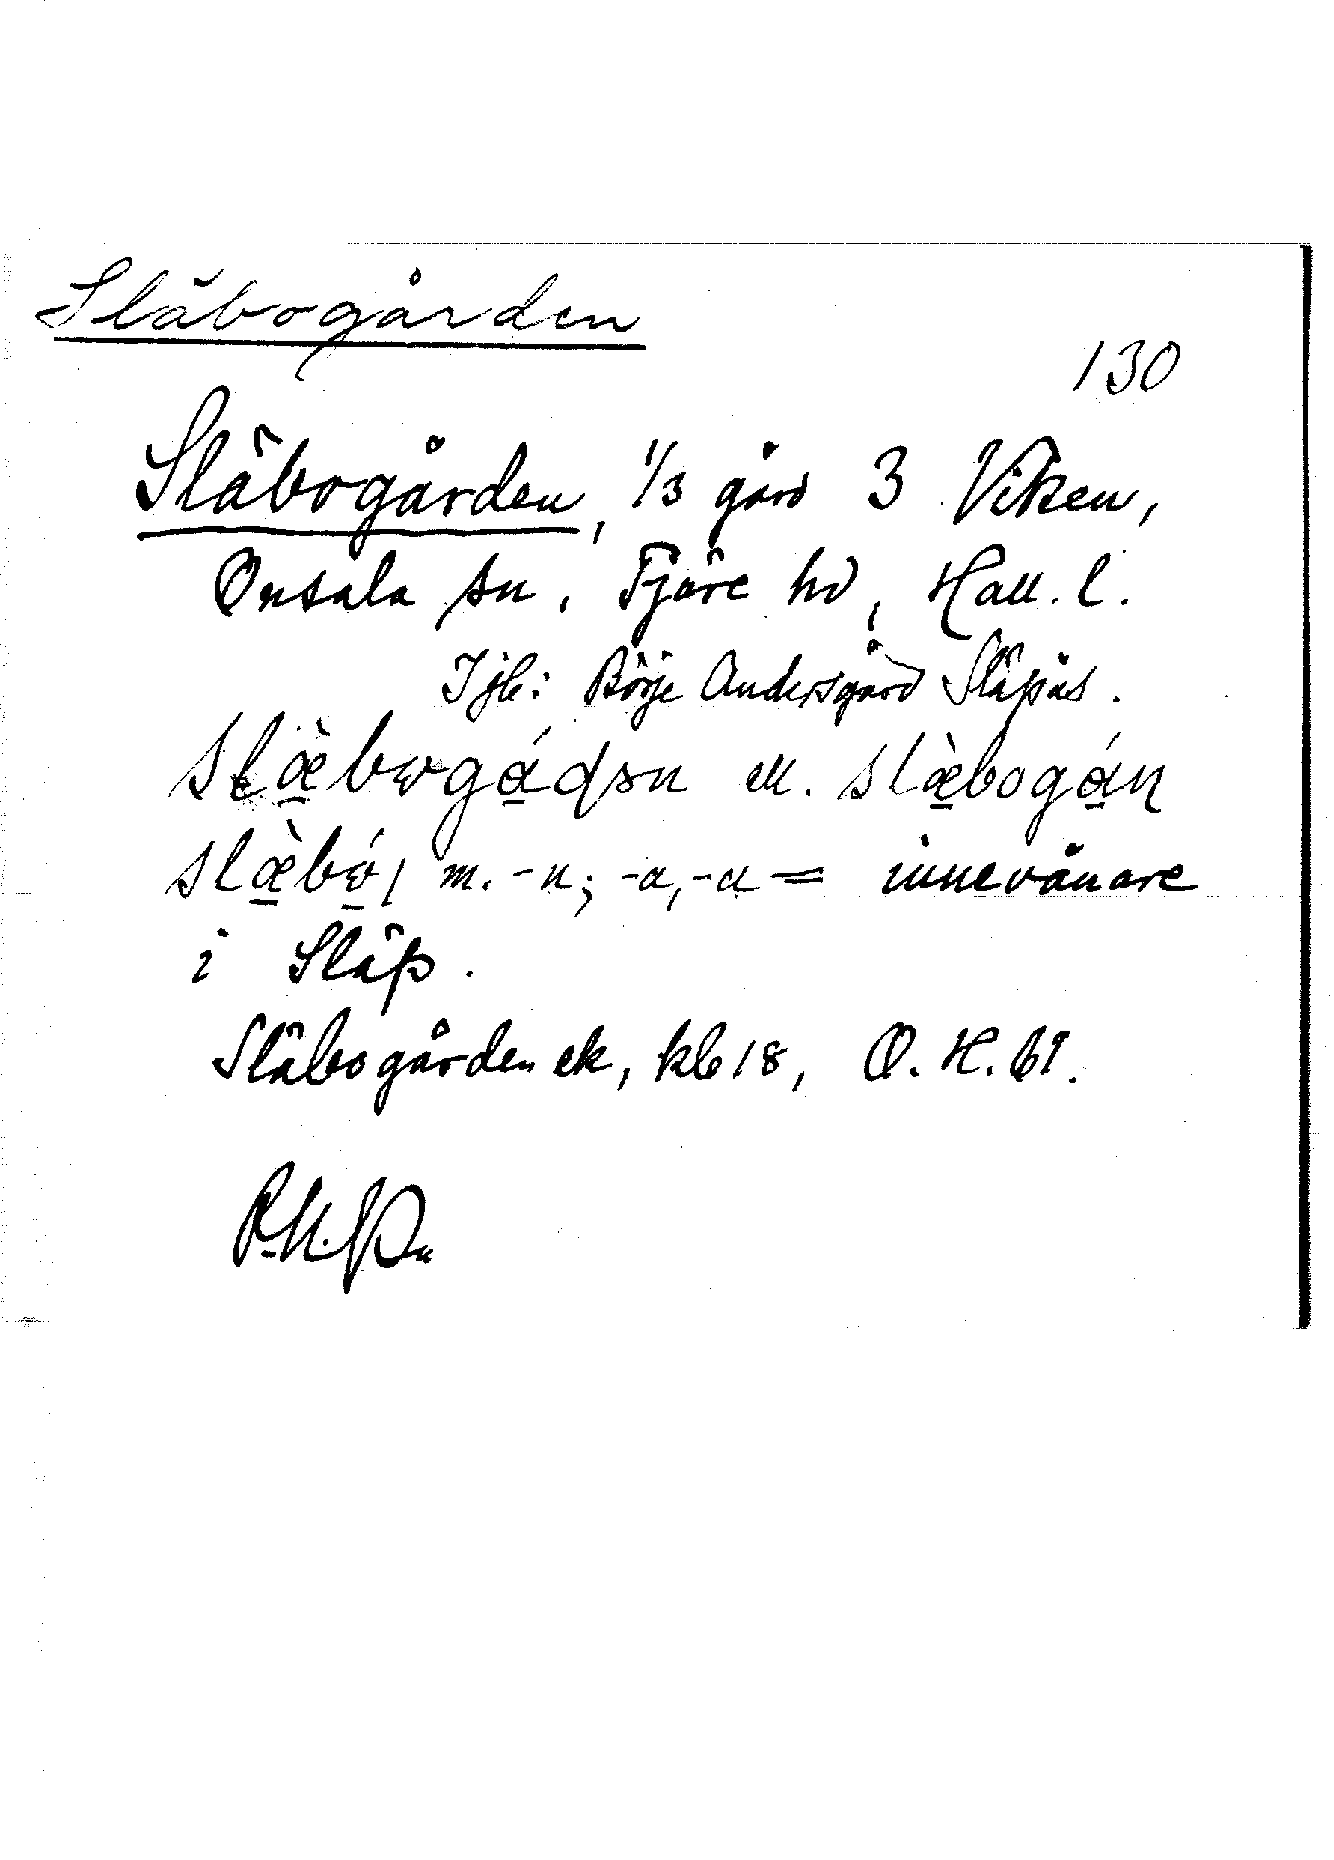 Släbogården
130
Släbogården, 1/3 gård 3 Viken,
Onsala sn, Fjäre hd, Hall. l.
Jfb: Börje Andersgård Släpås.
slæ̀bogádən ell. slæ̀bogáɳ
slæ̀bó, m. -n; -a, -a = innevånare
i Släp.
Släbogården ek, kb 18, O. H. 61.